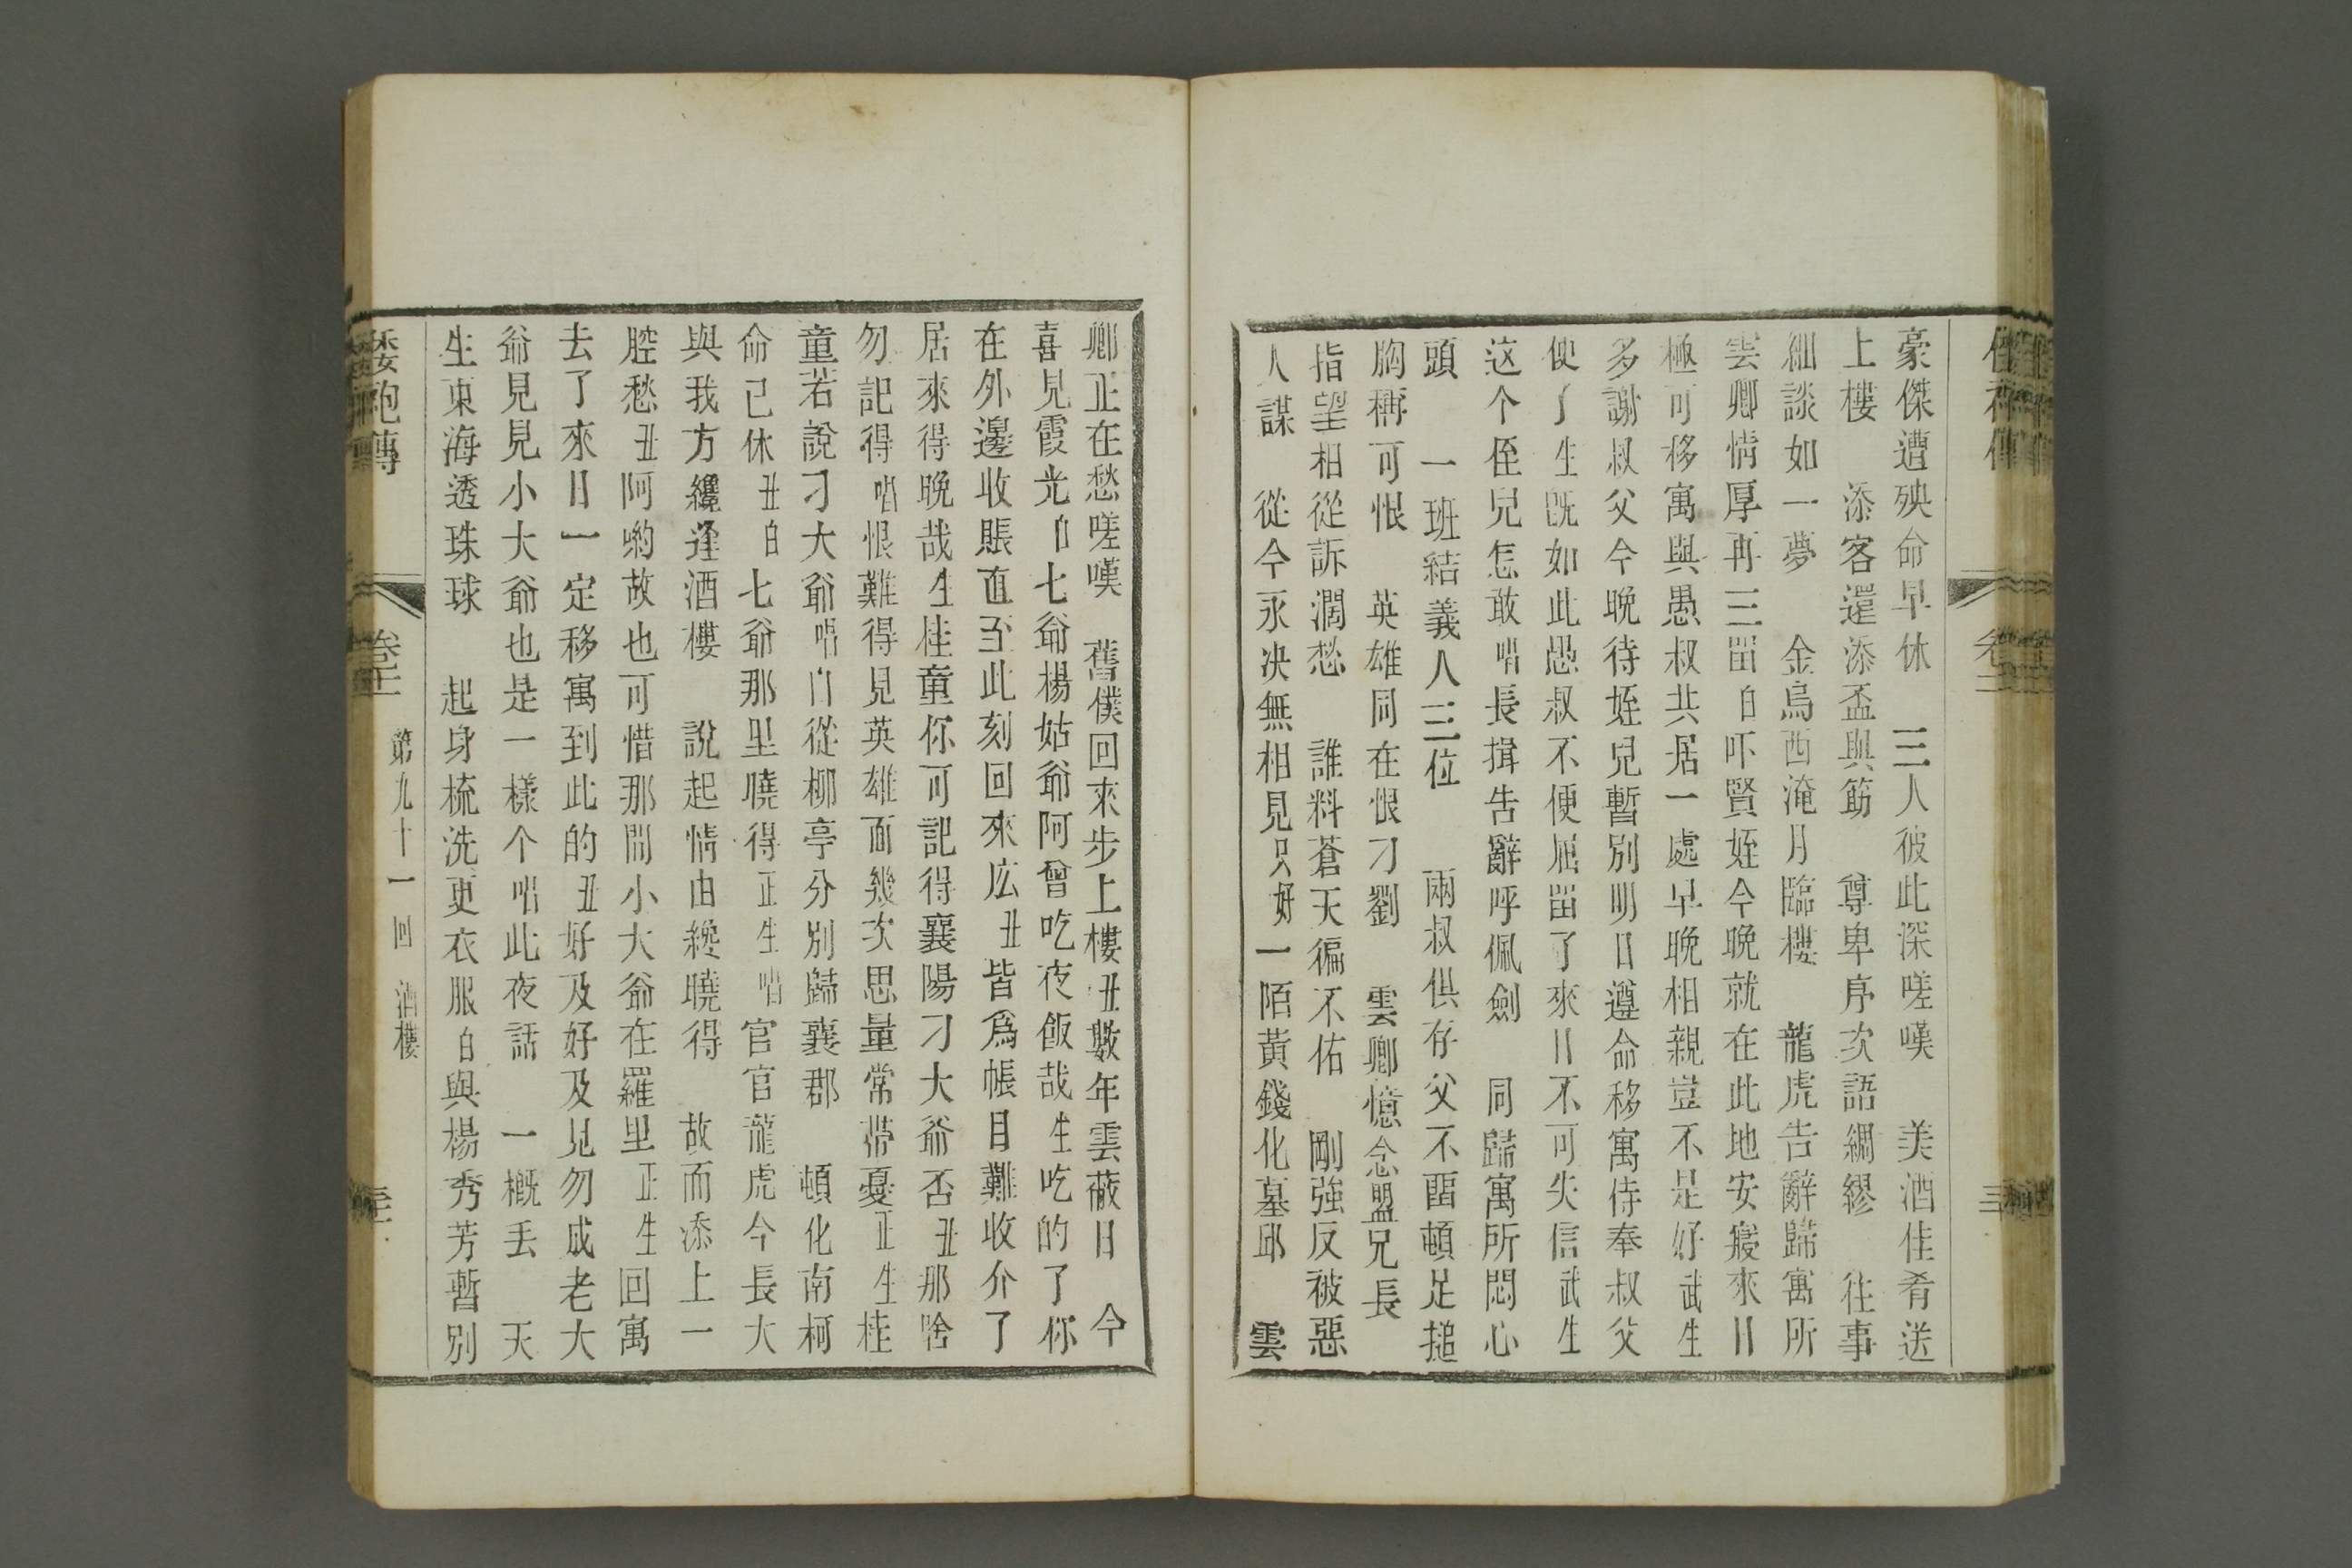 豪傑遭殃命早休　三人彼此深嗟嘆　美酒佳肴送
上樓　添客還添盃與筯　尊卑序次語綢繆　往事
細談如一夢　金烏西淹月臨樓　龍虎告辭歸寓所
雲卿情厚再三畱白吓賢姪今晚就在此地安寢來日
極可移寓與愚叔共居一處早晚相親豈不是好武生
多謝叔父今晚待姪兒暫別明日遵命移寓侍奉叔父
便了生旣如此愚叔不便屈畱了來日不可失信武生
这个侄兒怎敢唱長揖告辭呼佩劍　同歸寓所悶心
頭　一班結義人三位　兩叔俱存父不畱頓足搥
胸稱可恨　英雄同在恨刁劉　雲卿憶念盟兄長
指望相從訴濶愁　誰料蒼天徧不佑　剛強反被惡
人謀　從今永决無相見只好一陌黃錢化墓邱　雲
卿正在愁嗟嘆　舊僕回來步上樓丑數年雲蔽日　今
喜見霞光白七爺楊姑爺阿曾吃夜飯哉生吃的了你
在外邊收賬直至此刻回來広丑皆爲帳目難收介了
居來得晚哉生桂童你可記得襄陽刁大爺否丑那啥
勿記得唱恨難得見英雄面幾次思量常帶憂正生桂
童若說刁大爺唱自從柳亭分別歸襄郡　頓化南柯
命已休丑白七爺那里曉得正生唱官官龍虎今長大
與我方纔逢酒樓　說起情由纔曉得　故而添上一
腔愁丑阿喲故也可惜那間小大爺在羅里正生回寓
去了來日一定移寓到此的丑好及好及見勿成老大
爺見見小大爺也是一樣个唱此夜話　一概丢　天
生東海透珠球　起身梳洗更衣服白與楊秀芳暫別
袍傳　卷十二　第九十一回　酒樓